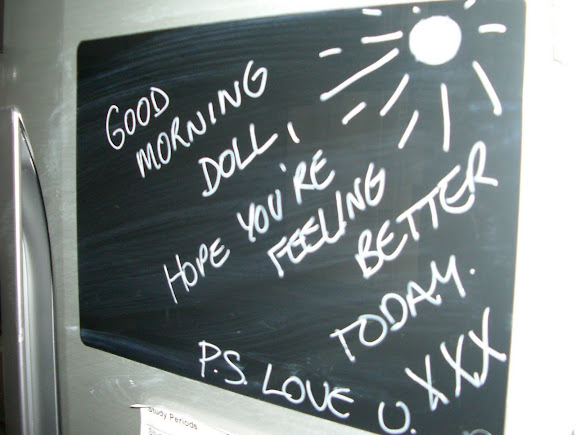 GOOD
MORNING
DOLL,
HOPE YOU'RE
FEELING
BETTER
TODAY.
P.S. LOVE U. XXX
Study Periods